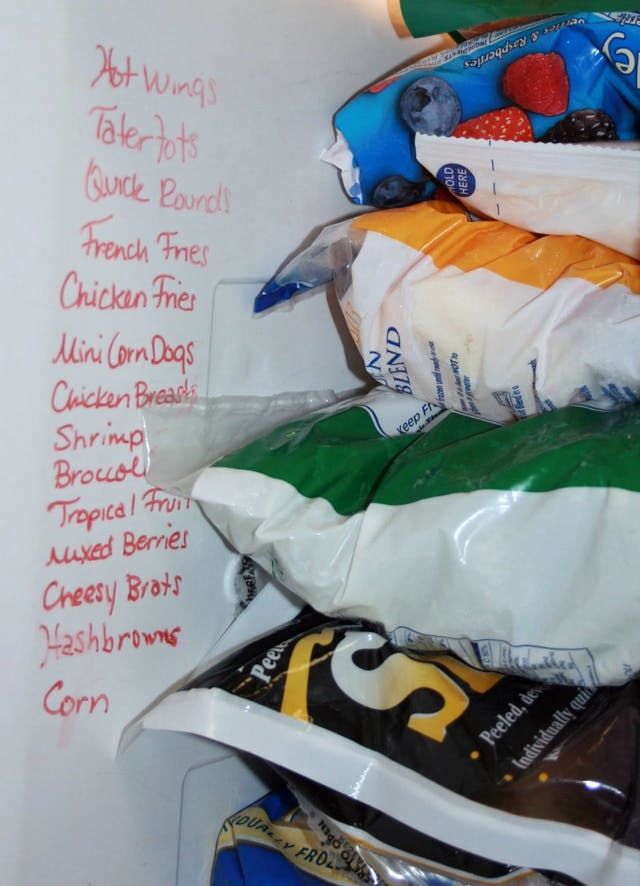 Hot Wings
Tater Tots
Quick Rounds
French Fries
Chicken Fries
Mini Corn Dogs
Chicken Breasts
Shrimp
Broccol
Tropical Fruit
Mixed Berries
Cheesy Brats
Hashbrowns
Corn
erries & Raspberries
ley
HOLD
HERE
BLEND
Keep Fr
Peele
S
Peeled, de
Individually qui
DUALLY FRO